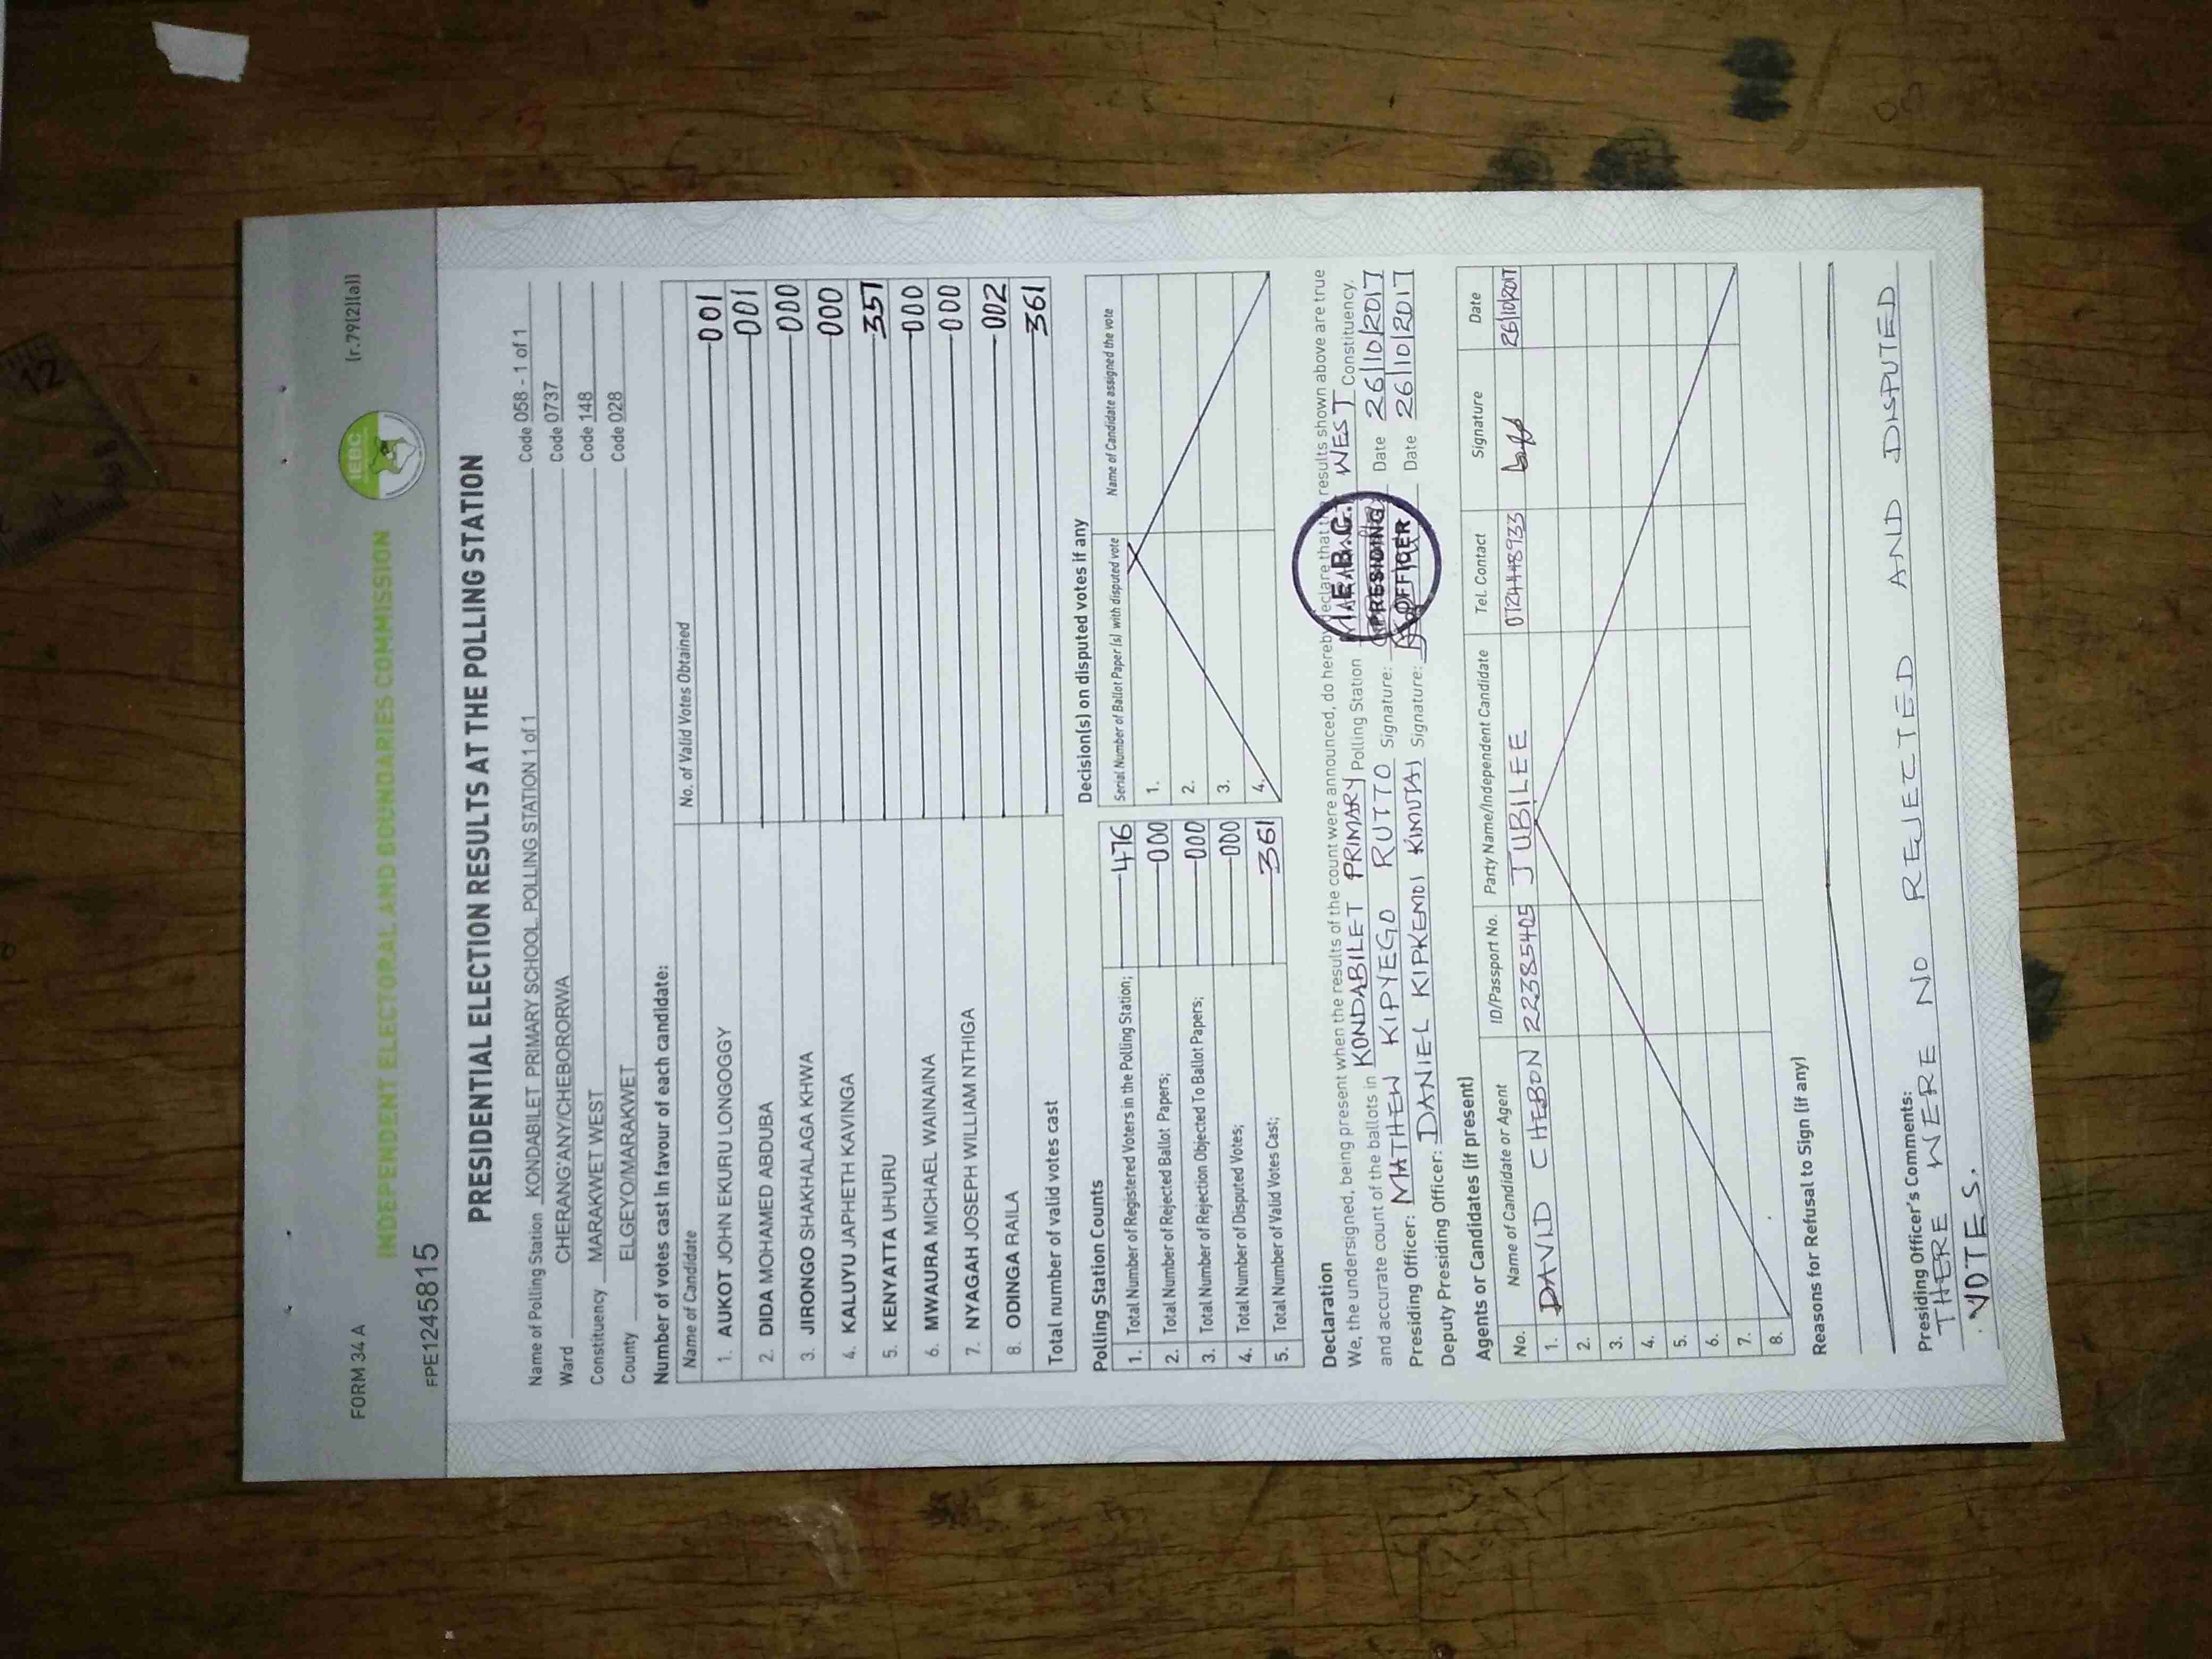 FORM 34 A
(r.79(2)(a))
INDEPENDENT ELECTORAL AND BOUNDARIES COMMISSION
IEBC
FPE1245815
PRESIDENTIAL ELECTION RESULTS AT THE POLLING STATION
Name of Polling Station KONDABILET PRIMARY SCHOOL POLLING STATION 1 of 1 Code 058 - 1 of 1
Ward CHERANG'ANY/CHEBORORWA Code 0737
Constituency MARAKWET WEST Code 148
County ELGEYO/MARAKWET Code 028
Number of votes cast in favour of each candidate:
Name of Candidate No. of Valid Votes Obtained
1. AUKOT JOHN EKURU LONGOGGY 001
2. DIDA MOHAMED ABDUBA 001
3. JIRONGO SHAKHALAGA KHWA 000
4. KALUYU JAPHETH KAVINGA 000
5. KENYATTA UHURU 357
6. MWAURA MICHAEL WAINAINA 000
7. NYAGAH JOSEPH WILLIAM NTHIGA 000
8. ODINGA RAILA 002
Total number of valid votes cast 361
Polling Station Counts
1. Total Number of Registered Voters in the Polling Station; 476
2. Total Number of Rejected Ballot Papers; 000
3. Total Number of Rejection Objected To Ballot Papers; 000
4. Total Number of Disputed Votes; 000
5. Total Number of Valid Votes Cast; 361
Decision(s) on disputed votes if any
Serial Number of Ballot Paper (s) with disputed vote Name of Candidate assigned the vote
1.
2.
3.
4.
Declaration
We, the undersigned, being present when the results of the count were announced, do hereby declare that the results shown above are true
and accurate count of the ballots in KONDABILET PRIMARY Polling Station WEST Constituency.
Presiding Officer: MATHEW KIPYEGO RUTTO Signature: Date 26/10/2017
Deputy Presiding Officer: DANIEL KIPKEMOI KIMUTAI Signature: Date 26/10/2017
I.E.B.C.
PRESIDING
OFFICER
Agents or Candidates (if present)
No. Name of Candidate or Agent ID/Passport No. Party Name/Independent Candidate Tel. Contact Signature Date
1. DAVID CHEBON 22385405 JUBILEE 0724448933 26/10/2017
2.
3.
4.
5.
6.
7.
8.
Reasons for Refusal to Sign (if any)
Presiding Officer's Comments:
THERE WERE NO REJECTED AND DISPUTED
VOTES.